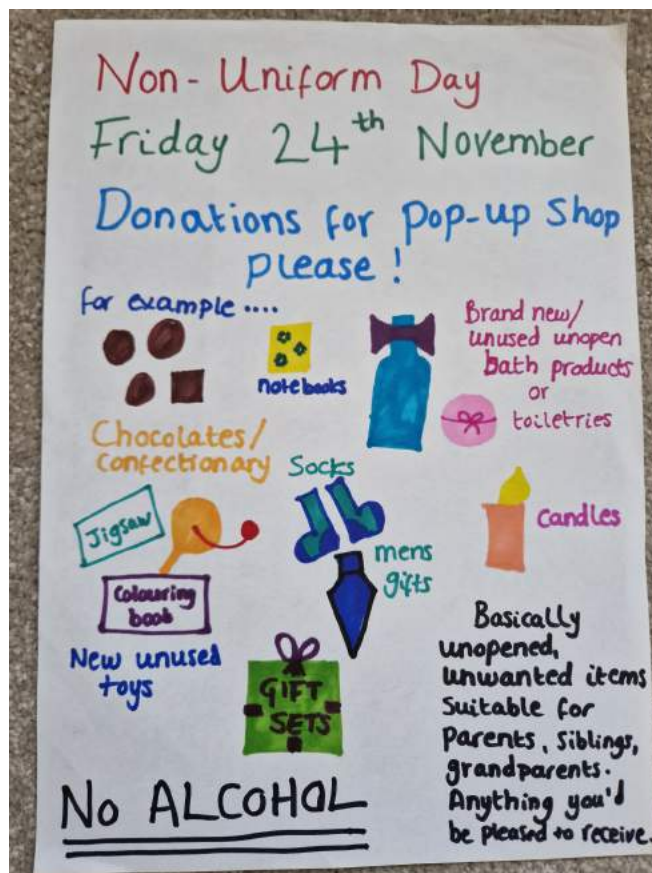 Non-Uniform Day
Friday 24th November
Donations for Pop-up Shop
please!
for example ....
notebooks
Brand new/
unused unopen
Bath products
or
toiletries
Chocolates/
Confectionary
Socks
Jigsaw
Candles
mens
gifts
Colouring
book
New unused
toys
GIFT
SETS
Basically
unopened,
unwanted items
Suitable for
Parents, Siblings,
grandparents.
Anything you'd
be pleased to receive.
No ALCOHOL